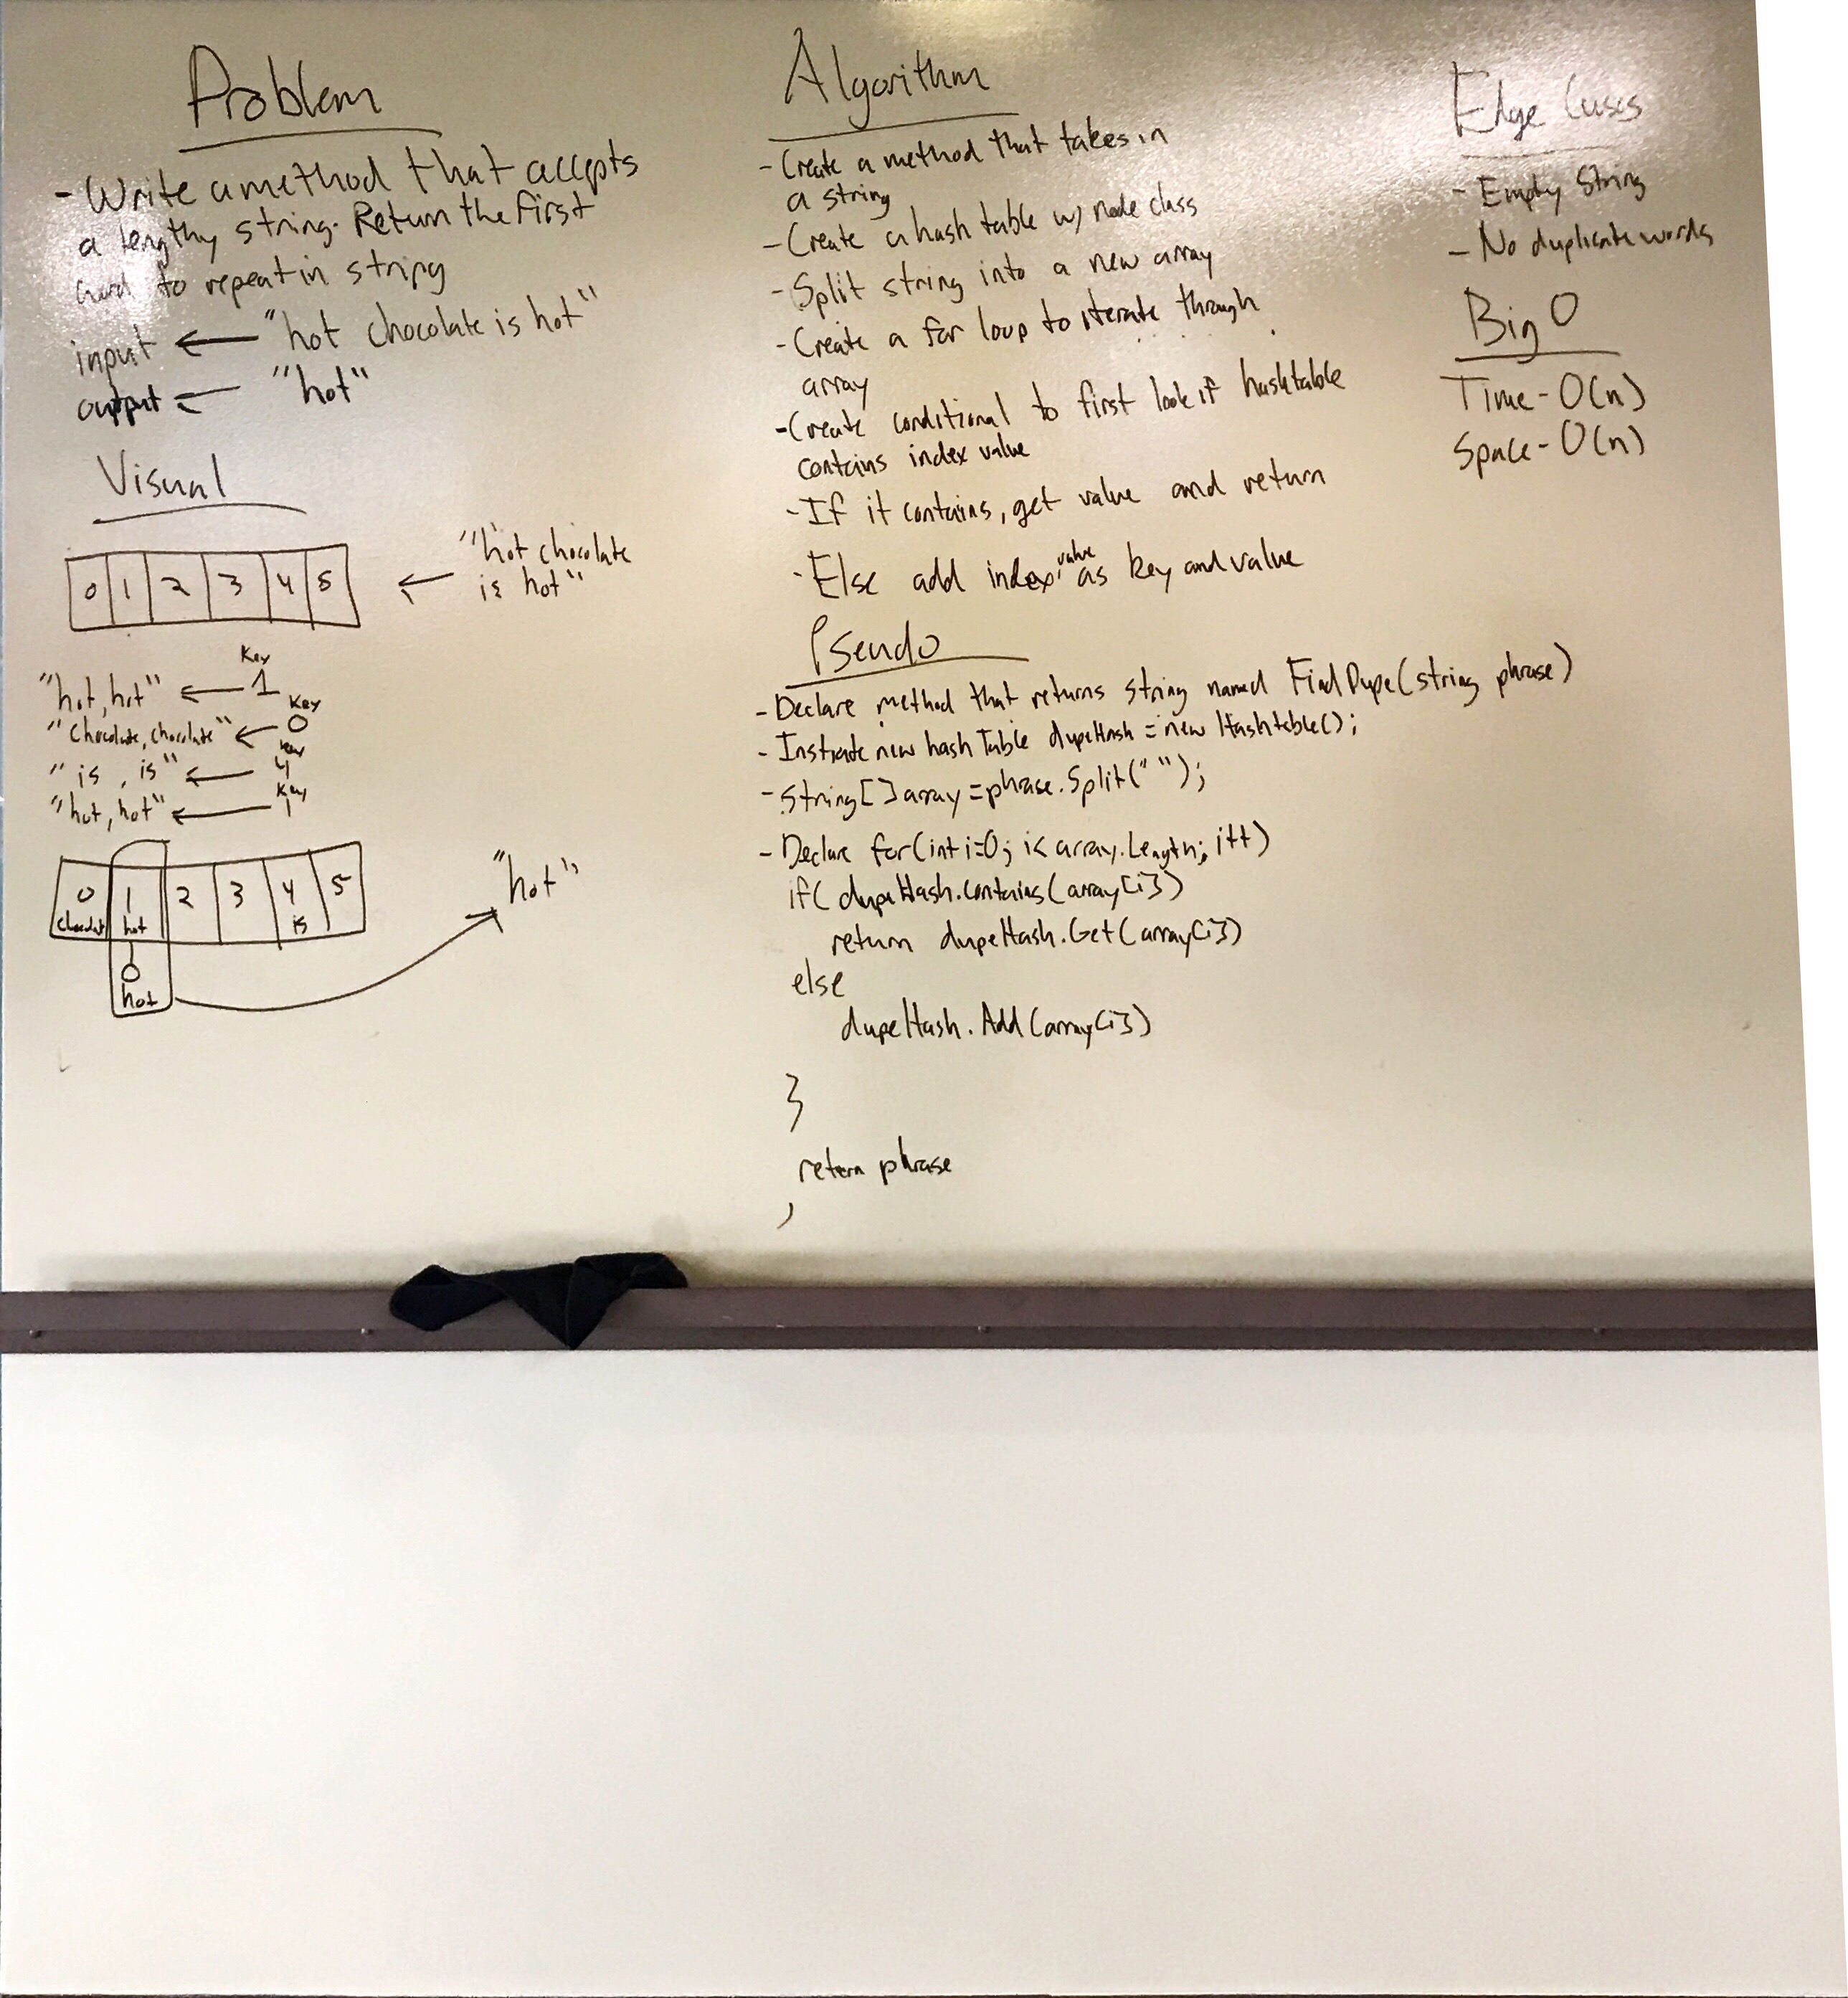 Problem
- Write a method that accepts
a lengthy string. Return the first
word to repeat in string
input ← "hot chocolate is hot"
output ← "hot"
Visual
0 1 2 3 4 5 ← "hot chocolate
is hot"
"hot, hot" ← Key 1
"Chocolate, chocolate" ← Key 0
"is, is" ← Key 4
"hot, hot" ← Key 1
0 1 2 3 4 5
hot is
hot
"hot"
Algorithm
- Create a method that takes in
a string
- Create a hash table w/ node class
- Split string into a new array
- Create a for loop to iterate through
array
- Create conditional to first look if hashtable
contains index value
- If it contains, get value and return
- Else add index value as key and value
Pseudo
- Declare method that returns string named FindDupe(string phrase)
- Instiate new hash Table dupeHash = new Hashtable();
- String[] array = phrase.Split(" ");
- Declare for(int i=0; i< array.Length; i++)
if( dupeHash.Contains(array[i])
return dupeHash.Get(array[i])
else
dupeHash.Add(array[i])
}
return phrase
Edge Cases
- Empty String
- No duplicate words
Big O
Time - O(n)
Space - O(n)